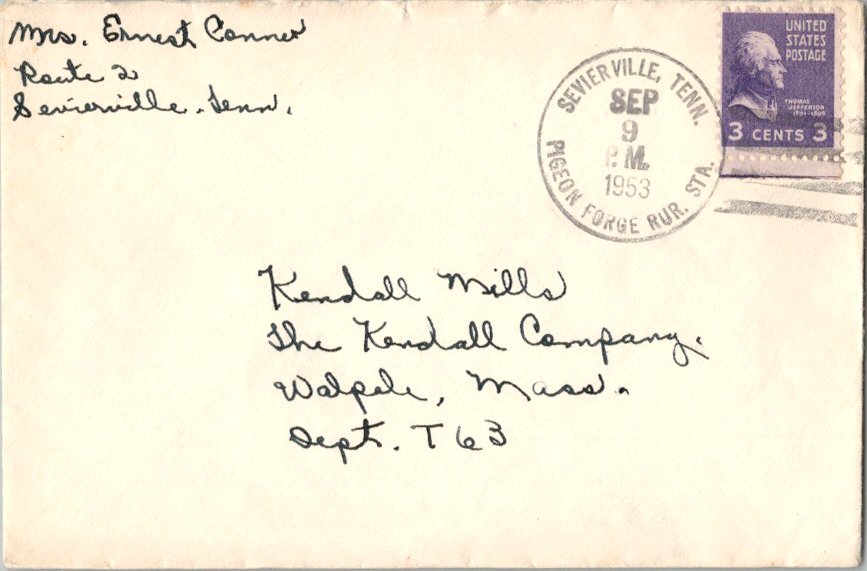 Mrs. Ernest Conner
Route 2
Sevierville. Tenn.
SEVIERVILLE, TENN.
SEP
9
P.M.
1953
PIGEON FORGE RUR. STA.
UNITED
STATES
POSTAGE
THOMAS
JEFFERSON
1801-1809
3 CENTS 3
Kendall Mills
The Kendall Company.
Walpole, Mass.
Dept. T63